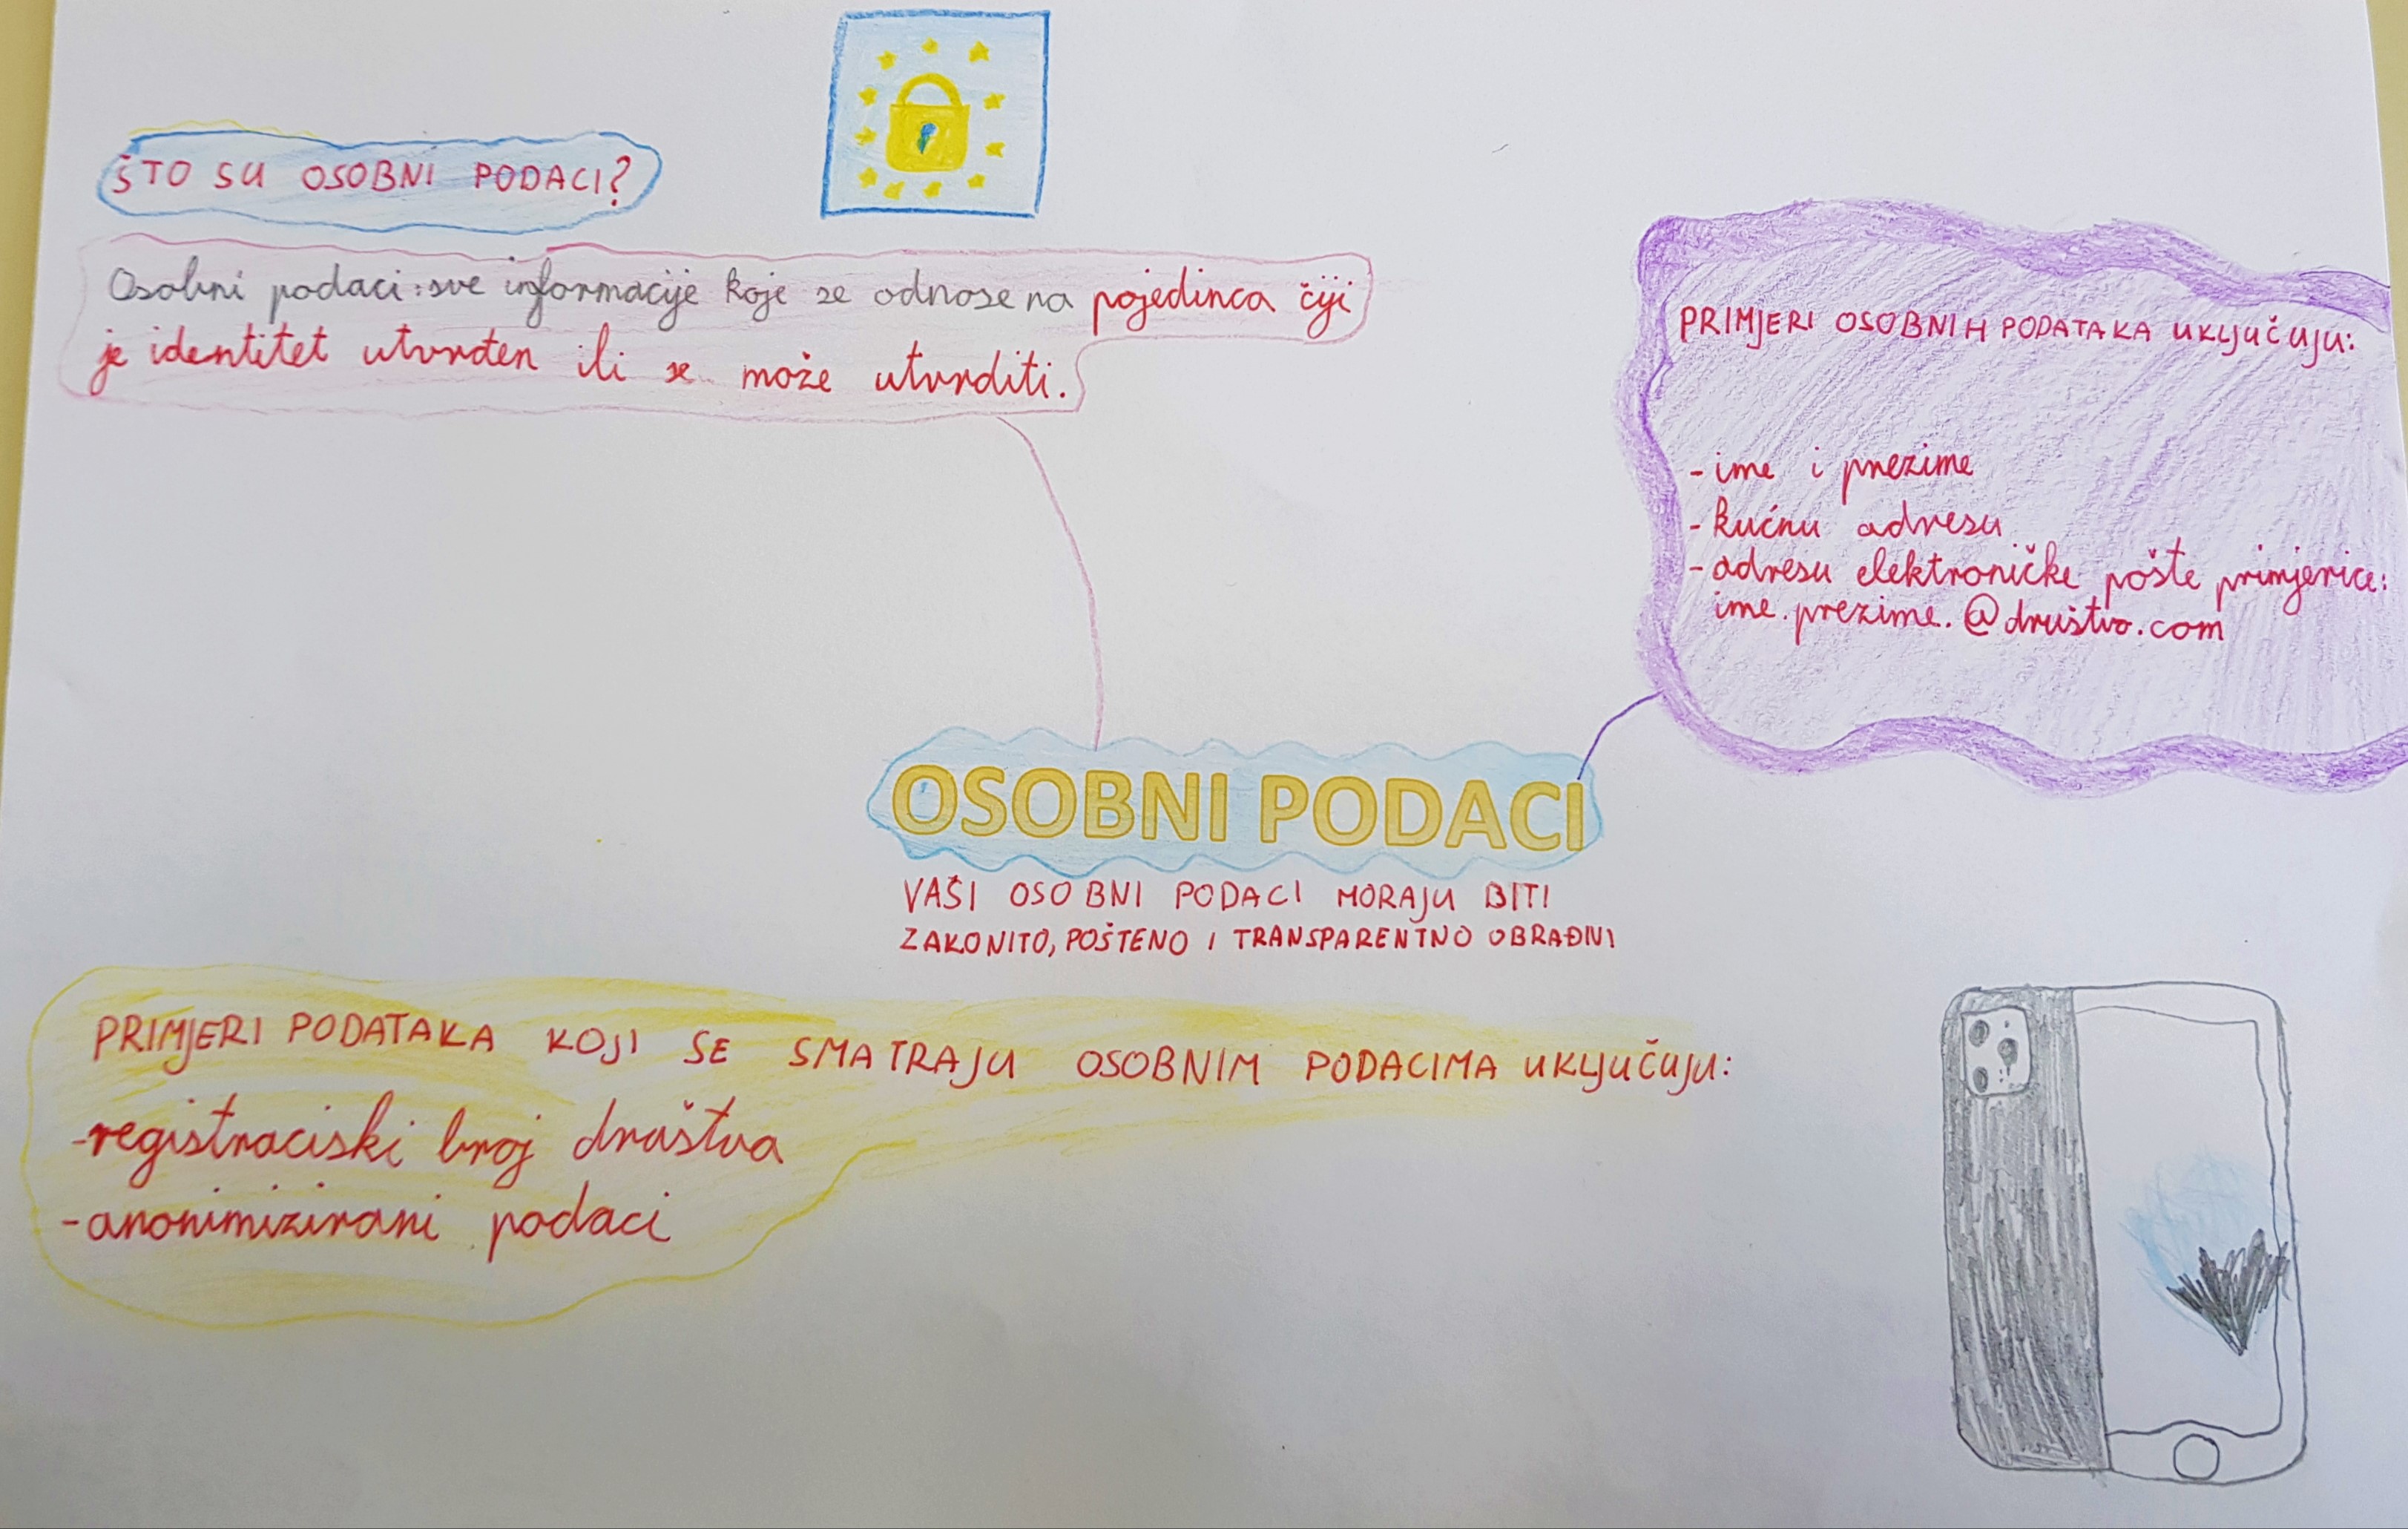 ŠTO SU OSOBNI PODACI?
Osobni podaci: sve informacije koje se odnose na pojedinca čiji
je identitet utvrđen ili se može utvrditi.
PRIMJERI OSOBNIH PODATAKA UKLJUČUJU:
- ime i prezime
- kućnu adresu
- adresu elektroničke pošte primjerice:
ime.prezime.@društvo.com
OSOBNI PODACI
VAŠI OSOBNI PODACI MORAJU BITI
ZAKONITO, POŠTENO I TRANSPARENTNO OBRAĐIVI
PRIMJERI PODATAKA KOJI SE SMATRAJU OSOBNIM PODACIMA UKLJUČUJU:
-registraciski broj društva
-anonimizirani podaci